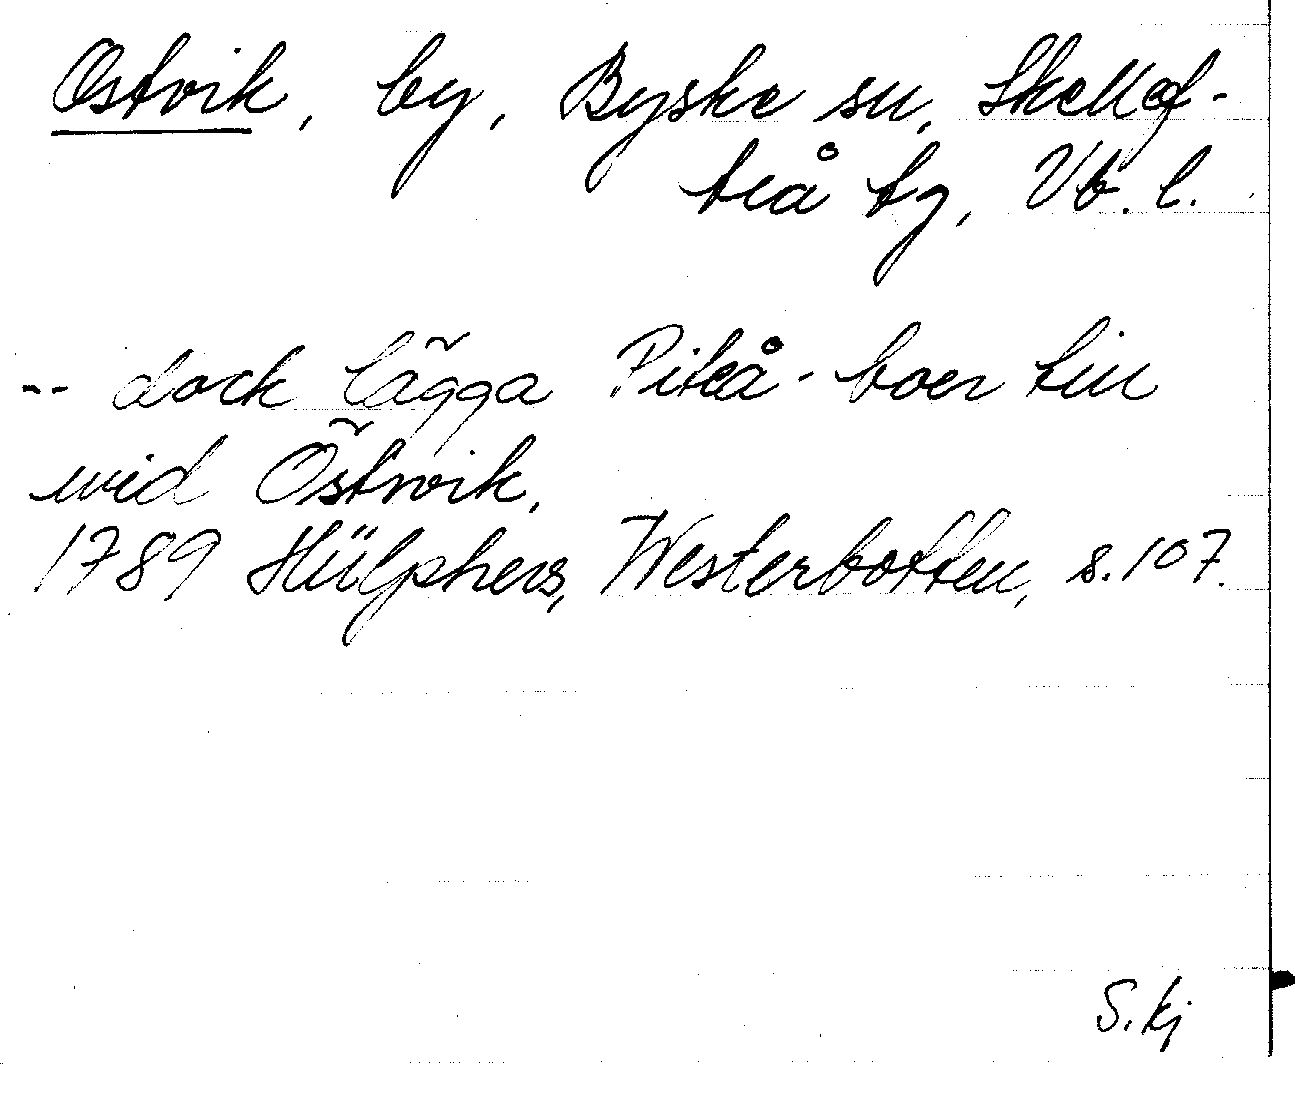 Ostvik, by, Byske sn, Skellef-
teå tg, Vb. l.
-- dock lägga Piteå-boer till
wid Östwik.
1789 Hülphers, Westerbotten, s.107.
S. kj